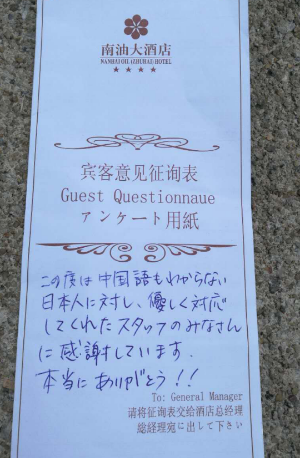 南油大酒店
NANHAI OIL (ZHUHAI) HOTEL
★★★★
宾客意见征询表
Guest Questionnaue
アンケート用紙
この度は中国語もわからない
日本人に対し、優しく対応
してくれたスタッフのみなさん
に感謝しています.
本当にありがとう!!
To: General Manager
请将征询表交给酒店总经理
総経理宛に出して下さい